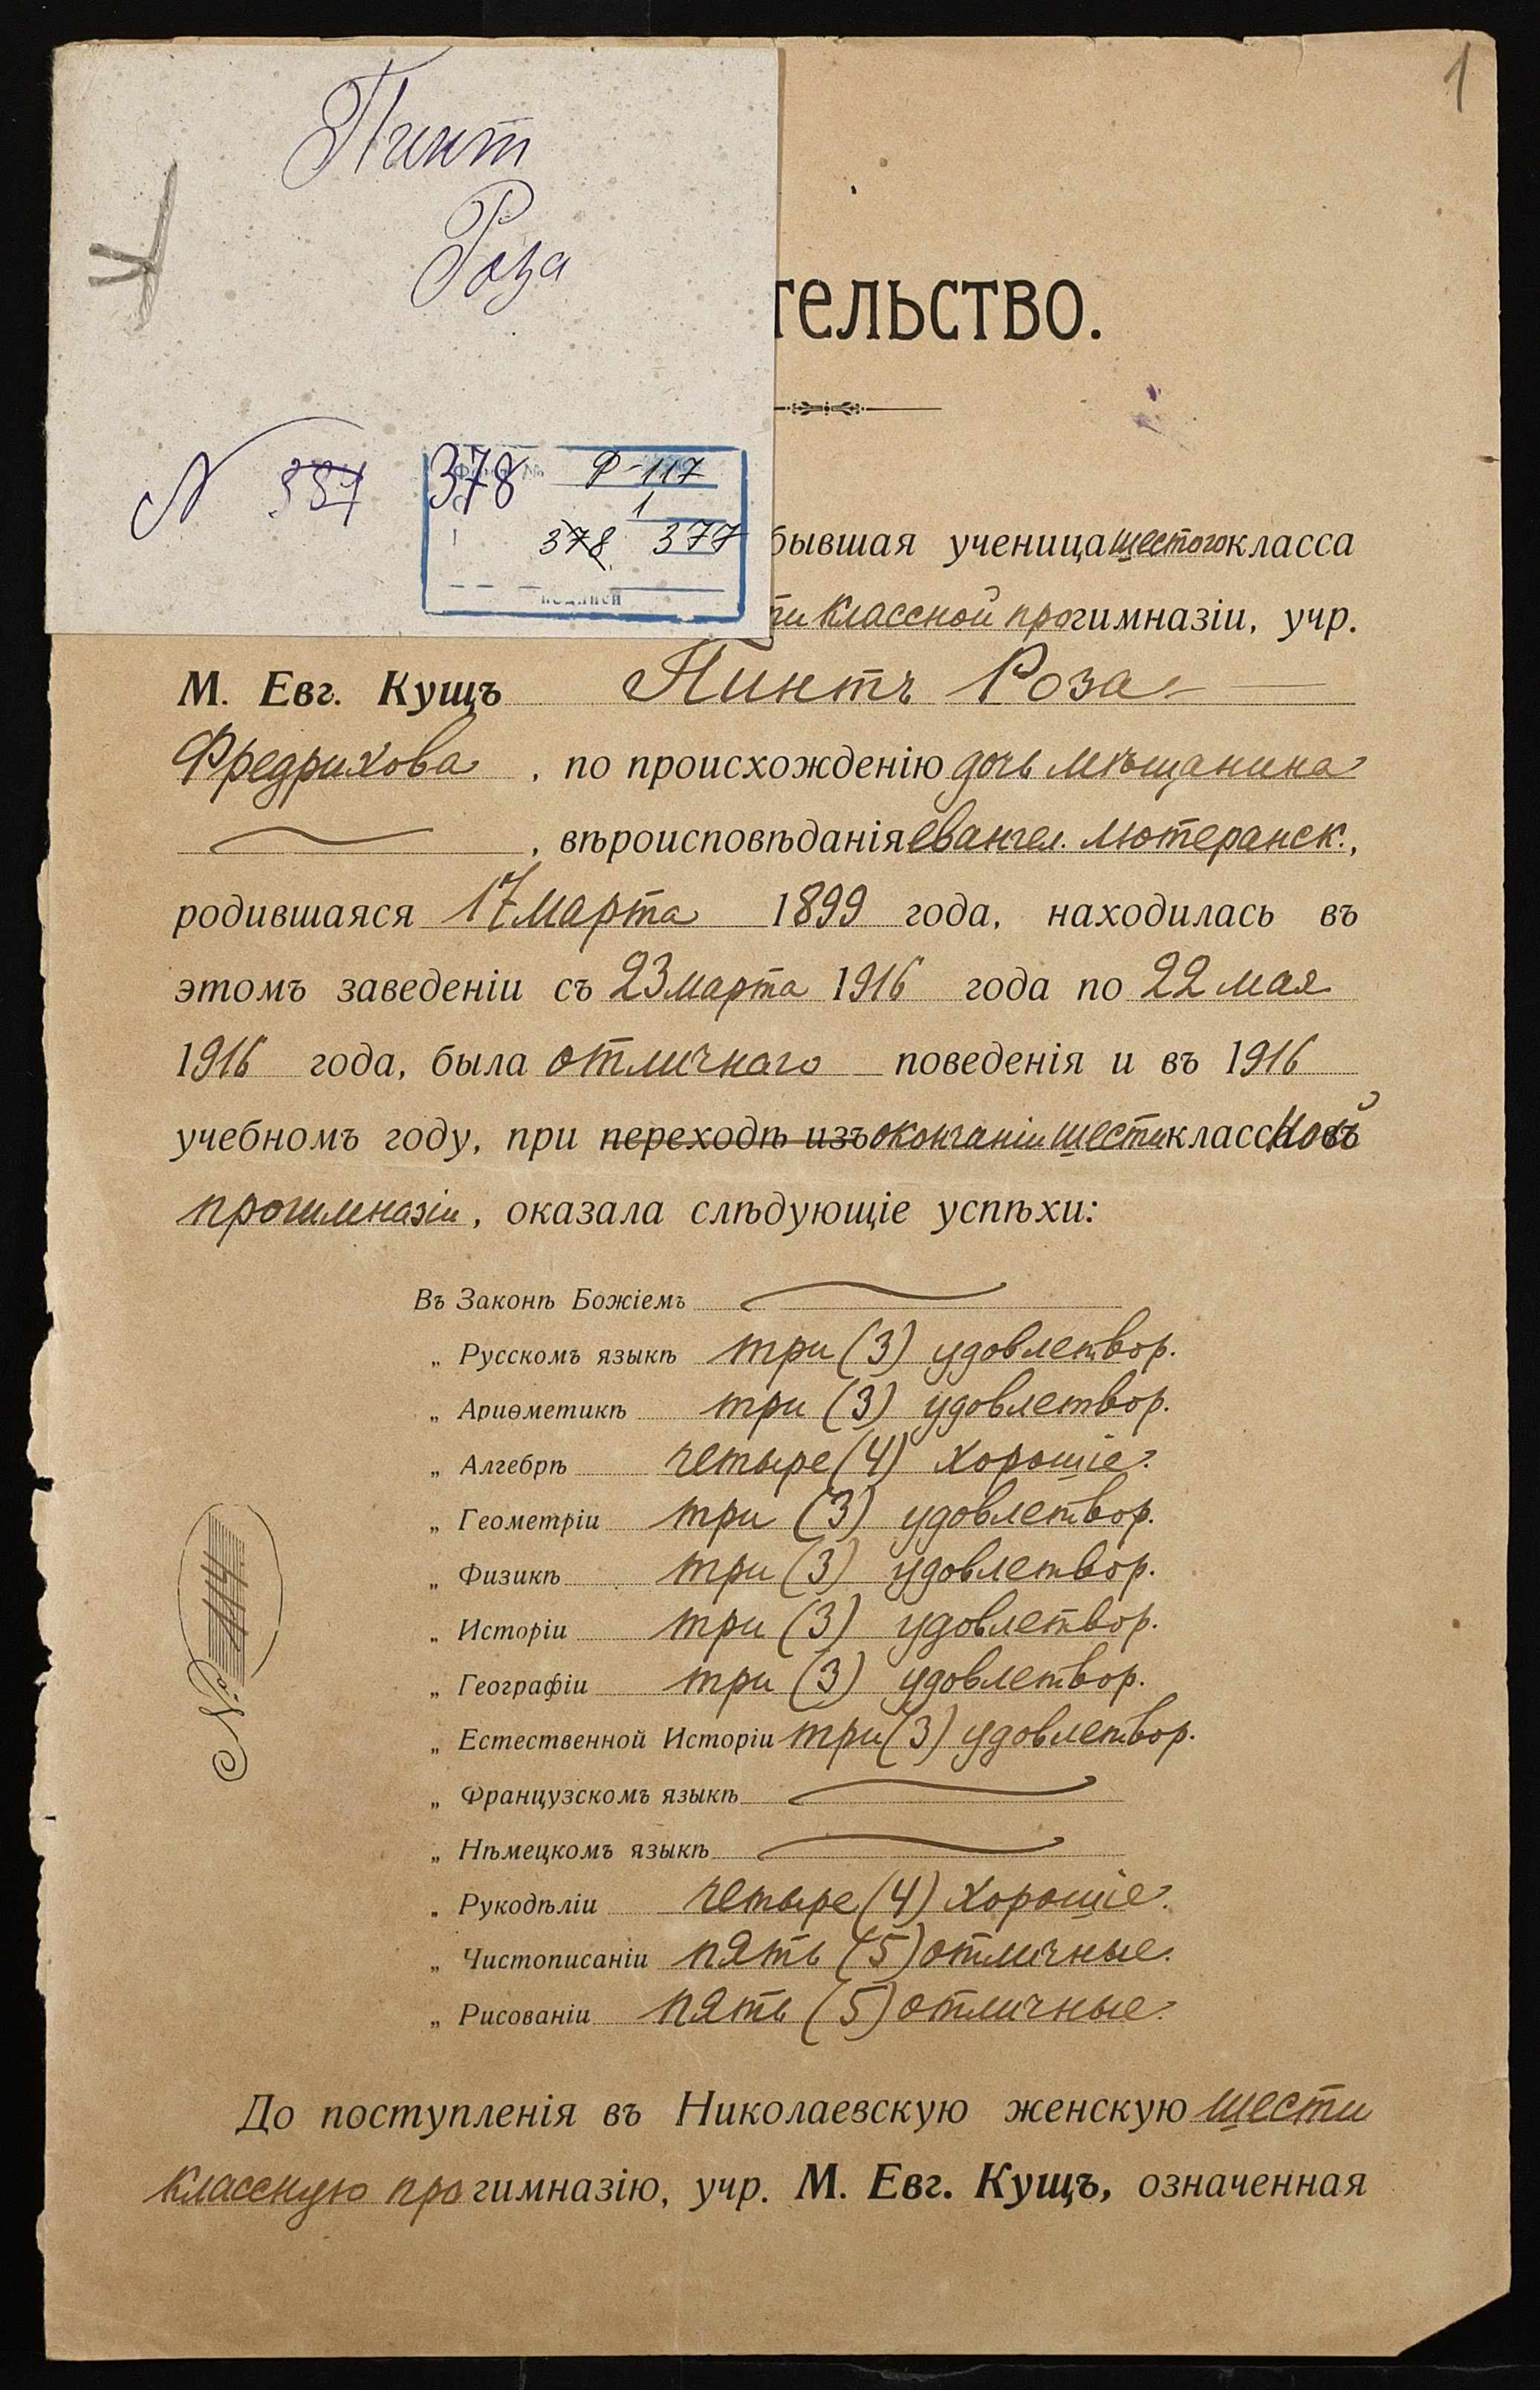 1
Пинт
Роза
тельство.
N 387 378
Ф-117
1
378 377
подписи
бывшая ученица шестого класса
ти классной прогимназіи, учр.
М. Евг. Кущъ Пинтъ Роза
Фредрихова, по происхожденію дочь мѣщанина
, вѣроисповѣданія евангел. лютеранск.,
родившаяся 17 марта 1899 года, находилась въ
этомъ заведеніи съ 23 марта 1916 года по 22 мая
1916 года, была отличнаго поведенія и въ 1916
учебномъ году, при переходѣ изъ окончаніи шестиклассной
прогимназіи, оказала слѣдующіе успѣхи:
Въ Законѣ Божіемъ
„ Русскомъ языкѣ три (3) удовлетвор.
„ Ариѳметикѣ три (3) удовлетвор.
„ Алгебрѣ четыре (4) хорошіе.
„ Геометріи три (3) удовлетвор.
„ Физикѣ три (3) удовлетвор.
„ Исторіи три (3) удовлетвор.
„ Географіи три (3) удовлетвор.
„ Естественной Исторіи три (3) удовлетвор.
„ Французскомъ языкѣ
„ Нѣмецкомъ языкѣ
„ Рукодѣліи четыре (4) хорошіе.
„ Чистописаніи пять (5) отличные.
„ Рисованіи пять (5) отличные.
№ 114
До поступленія въ Николаевскую женскую шести
классную прогимназію, учр. М. Евг. Кущъ, означенная